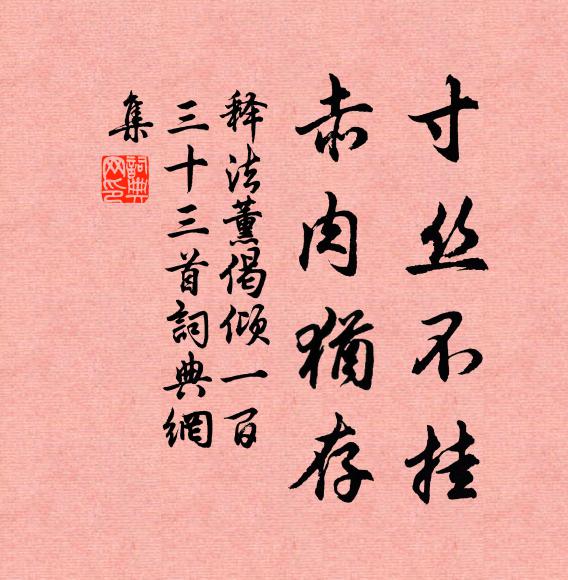 寸丝不挂
赤肉犹存
释法薰偈倾一百
三十三首詞典網
集
詞典網印